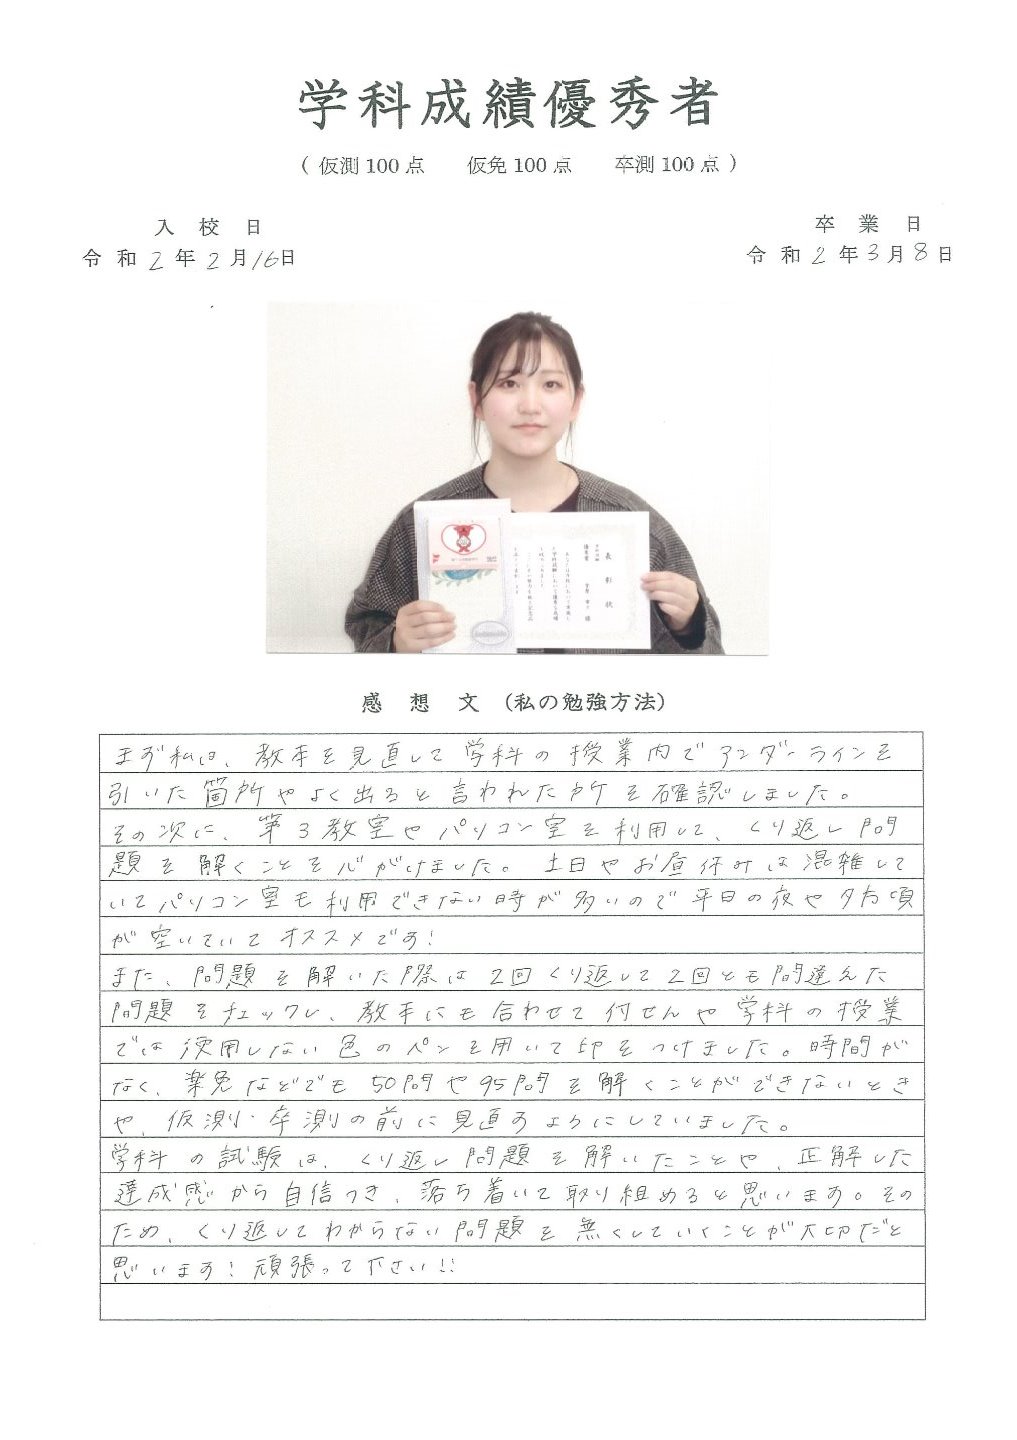 学科成績優秀者
( 仮測 100 点　仮免 100 点　卒測 100 点 )
入校日
令和2年2月16日
卒業日
令和2年3月8日
表彰状
感想文 (私の勉強方法)
まず私は、教本を見直して学科の授業内でアンダーラインを
引いた箇所やよく出ると言われた所を確認しました。
その次に、第3教室やパソコン室を利用して、くり返し問
題を解くことを心がけました。土日やお昼休みは混雑して
いてパソコン室も利用できない時が多いので平日の夜や夕方頃
が空いていてオススメです!
また、問題を解いた際は2回くり返して2回とも間違えた
問題をチェックし、教本にも合わせて付せんや学科の授業
では使用しない色のペンを用いて印をつけました。時間が
なく、楽免などでも50問や95問を解くことができないとき
や、仮測・卒測の前に見直すようにしていました。
学科の試験は、くり返し問題を解いたことや、正解した
達成感から自信つき、落ち着いて取り組めると思います。その
ため、くり返してわからない問題を無くしていくことが大切だと
思います!頑張って下さい!!